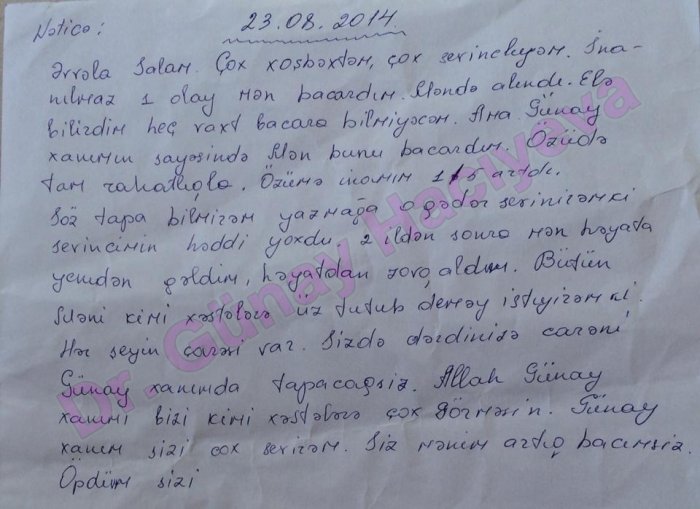 23.08.2014.
Nəticə:
Əvvəla Salam. Çox xoşbəxtəm, çox sevincliyəm. İna-
nılmaz 1 olay mən bacardım. Məndə alındı. Elə
bilirdim heç vaxt bacara bilmiyəcəm. Ama Günay
xanımın sayəsində Mən bunu bacardım. Özüdə
tam rahatlıqla. Özümə inamım artdı.
Söz tapa bilmirəm yazmağa o qədər sevinirəmki
sevincimin həddi yoxdu. 2 ildən sonra mən həyata
yenidən gəldim, həyatdan zövq aldım. Bütün
Məni kimi xəstələrə üz tutub deməy istiyirəmki.
Hər şeyin çarəsi var. Sizdə dərdinizə çarəni
Günay xanımda tapacaqsız. Allah Günay
xanımı bizi kimi xəstələrə çox görməsin. Günay
xanım sizi çox sevirəm. Siz mənim artıq bacımsız.
Öpdüm sizi
Dr. Günay Hacıyeva